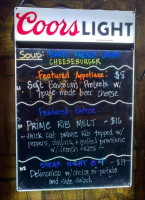 Coors LIGHT
SOUP:
CHEESEBURGER
Featured Appetizer: $8
Soft Bavarian Pretzels w/
house made beer cheese
Featured Entree:
PRIME RIB MELT - $16
thick cut prime rib topped w/
peppers, onions,
STEAK NIGHT - $19
Delmonico w/ choice of potato
and side salad